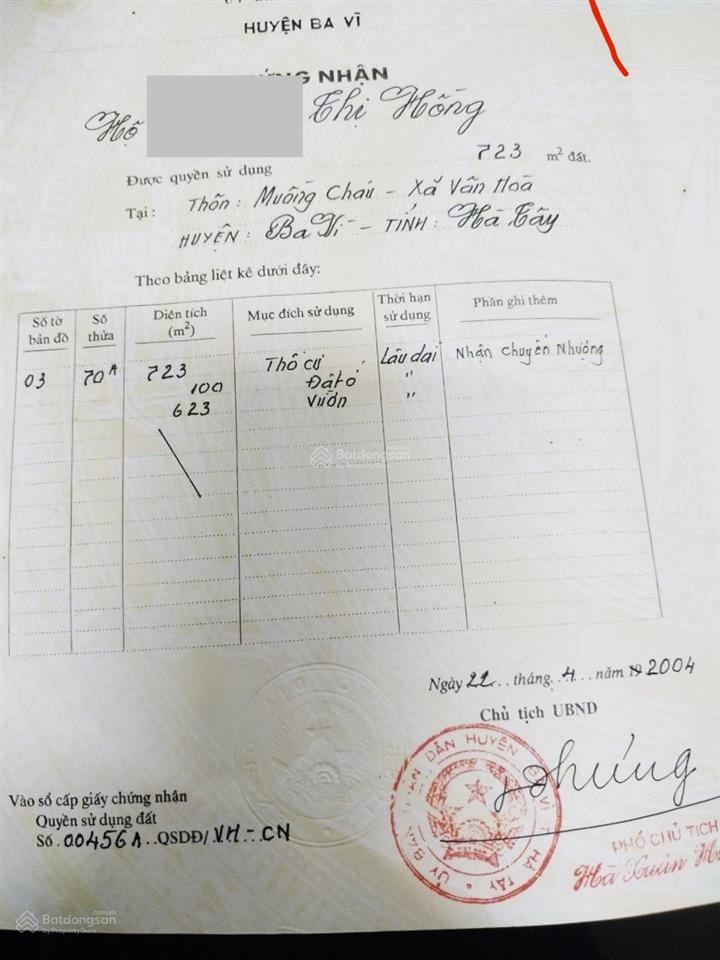 HUYỆN BA VÌ
NHẬN
Hộ Thị Hồng
Được quyền sử dụng 723 m² đất.
Tại: Thôn: Muồng Cháu - Xã Vân Hoà
HUYỆN: Ba Vì - TỈNH: Hà Tây
Theo bảng liệt kê dưới đây:
Số tờ bản đồ Số thửa Diện tích (m²) Mục đích sử dụng Thời hạn sử dụng Phần ghi thêm
03 70A 723 Thổ cư Lâu dài Nhận chuyển Nhượng
100 Đất ở "
623 Vườn "
Batdongsan
by PropertyGuru
Ngày 22 tháng 4 năm 2004
Chủ tịch UBND
Phừng
ỦY BAN NHÂN DÂN HUYỆN BA VÌ T. HÀ TÂY
Vào sổ cấp giấy chứng nhận
Quyền sử dụng đất
Số 00456A QSDĐ/VH-CN
PHÓ CHỦ TỊCH
Hà Xuân
Batdongsan
by PropertyGuru